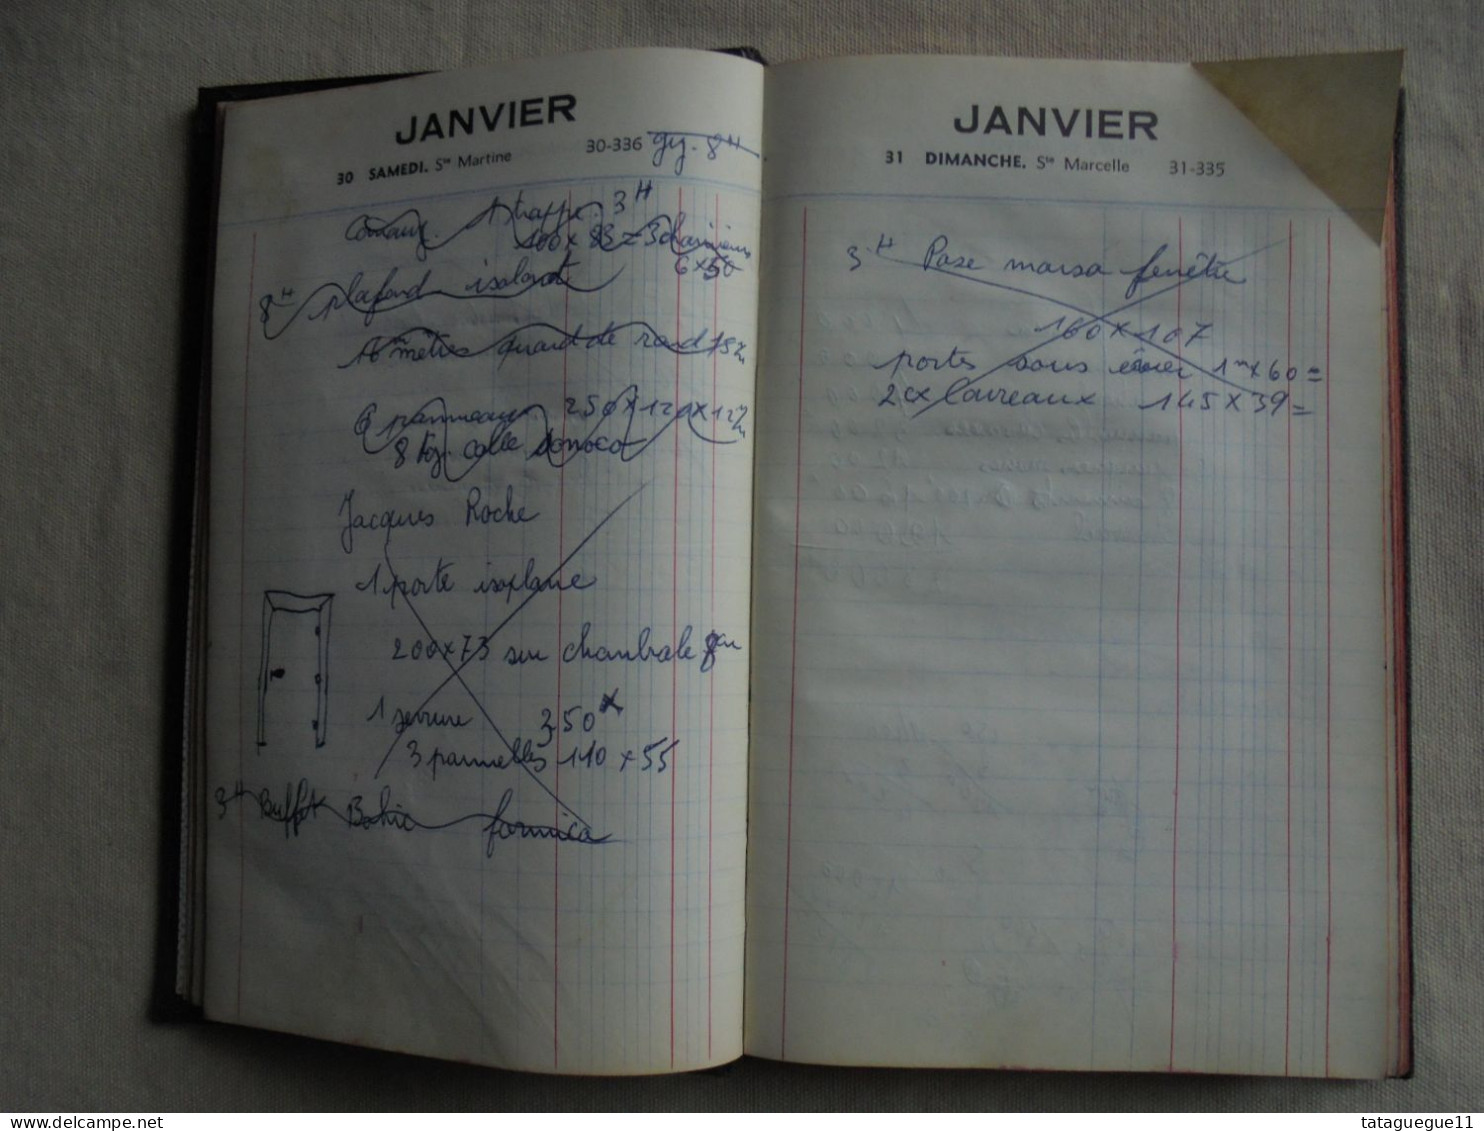 JANVIER
30 SAMEDI. Ste Martine 30-336 gy. 8H
1 trappe. 3H
100 x 83 = 3 charnières
6 x 50
8H plafond isolant
16 mètres quart de rond
6 panneaux 250 x 120 x 12
8 kg. colle
Jacques Roche
1 porte isoplane
200 x 73 sur chambrale
1 serrure 350
3 paumelles 110 x 55
3H Buffet formica
JANVIER
31 DIMANCHE. Ste Marcelle 31-335
3H Pose fenêtre
160 x 107
portes sous évier 1m x 60 =
145 x 39 =
delcampe.net
tataguegue11